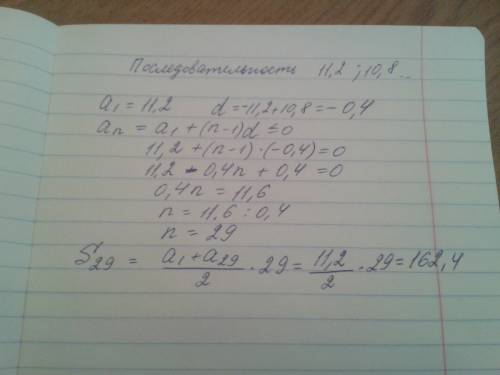 Последовательность 11,2 ; 10,8 ...
a₁ = 11,2 d = -11,2 + 10,8 = - 0,4
aₙ = a₁ + (n-1)d ≤ 0
11,2 + (n-1) · (-0,4) = 0
11,2 - 0,4n + 0,4 = 0
0,4n = 11,6
n = 11,6 : 0,4
n = 29
S₂₉ = (a₁ + a₂₉)/2 · 29 = 11,2/2 · 29 = 162,4